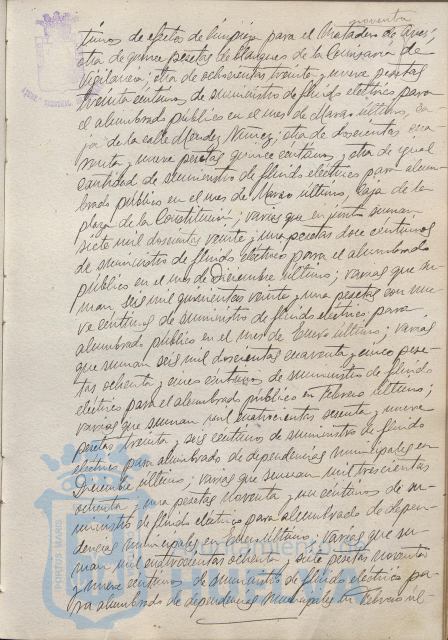 noventa
tivos de efectos de limpieza para el Matadero de Aves;
otra de quince pesetas de blanqueo de la Comisaría de
Vigilancia; otra de ochocientas treinta y nueve pesetas
treinta céntimos, de suministro de fluido eléctrico para
el alumbrado público en el mes de Marzo último, ca
ja de la calle Mendez Nuñez; otra de doscientas cua
renta y nueve pesetas quince céntimos y otra de igual
cantidad de suministro de fluido eléctrico para alum
brado público en el mes de Marzo último, caja de la
plaza de la Constitución; varias que en junto suman
siete mil doscientas veinte y una pesetas doce céntimos
de suministro de fluido eléctrico para el alumbrado
público en el mes de Diciembre último; varias que su
man seis mil quinientas veinte y una pesetas con nue
ve céntimos de suministro de fluido eléctrico para
alumbrado público en el mes de Enero último; varias
que suman seis mil doscientas cuarenta y cinco pese-
tas ochenta y cinco céntimos de suministro de fluido
eléctrico para el alumbrado público en Febrero último;
varias que suman mil cuatrocientas sesenta y nueve
pesetas treinta y seis céntimos de suministro de fluido
eléctrico para alumbrado de dependencias municipales en
Diciembre último; varias que suman mil trescientas
ochenta y una pesetas noventa y un céntimos de su-
ministro de fluido eléctrico para alumbrado de depen-
dencias municipales en Enero último; varias que su-
man mil cuatrocientas ochenta y siete pesetas noventa
y nueve céntimos de suministro de fluido eléctrico pa-
ra alumbrado de dependencias municipales en Febrero úl-
PORTUS MARIS
Ayuntamiento de